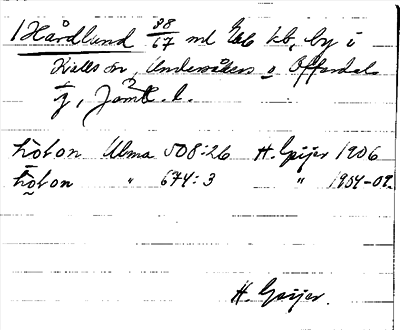 1 Hårdlund 88/67 ml Ekb kb, by i
Kalls sn, Undersåkers o Offerdals
tg, Jämtl. l.
hòlon Ulma 508:26 H. Geijer 1906
hòlon " 674:3 " 1904-09.
H. Geijer.